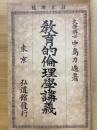 文學博士中島力造著
教育的倫理學講義
東京 弘道館發行